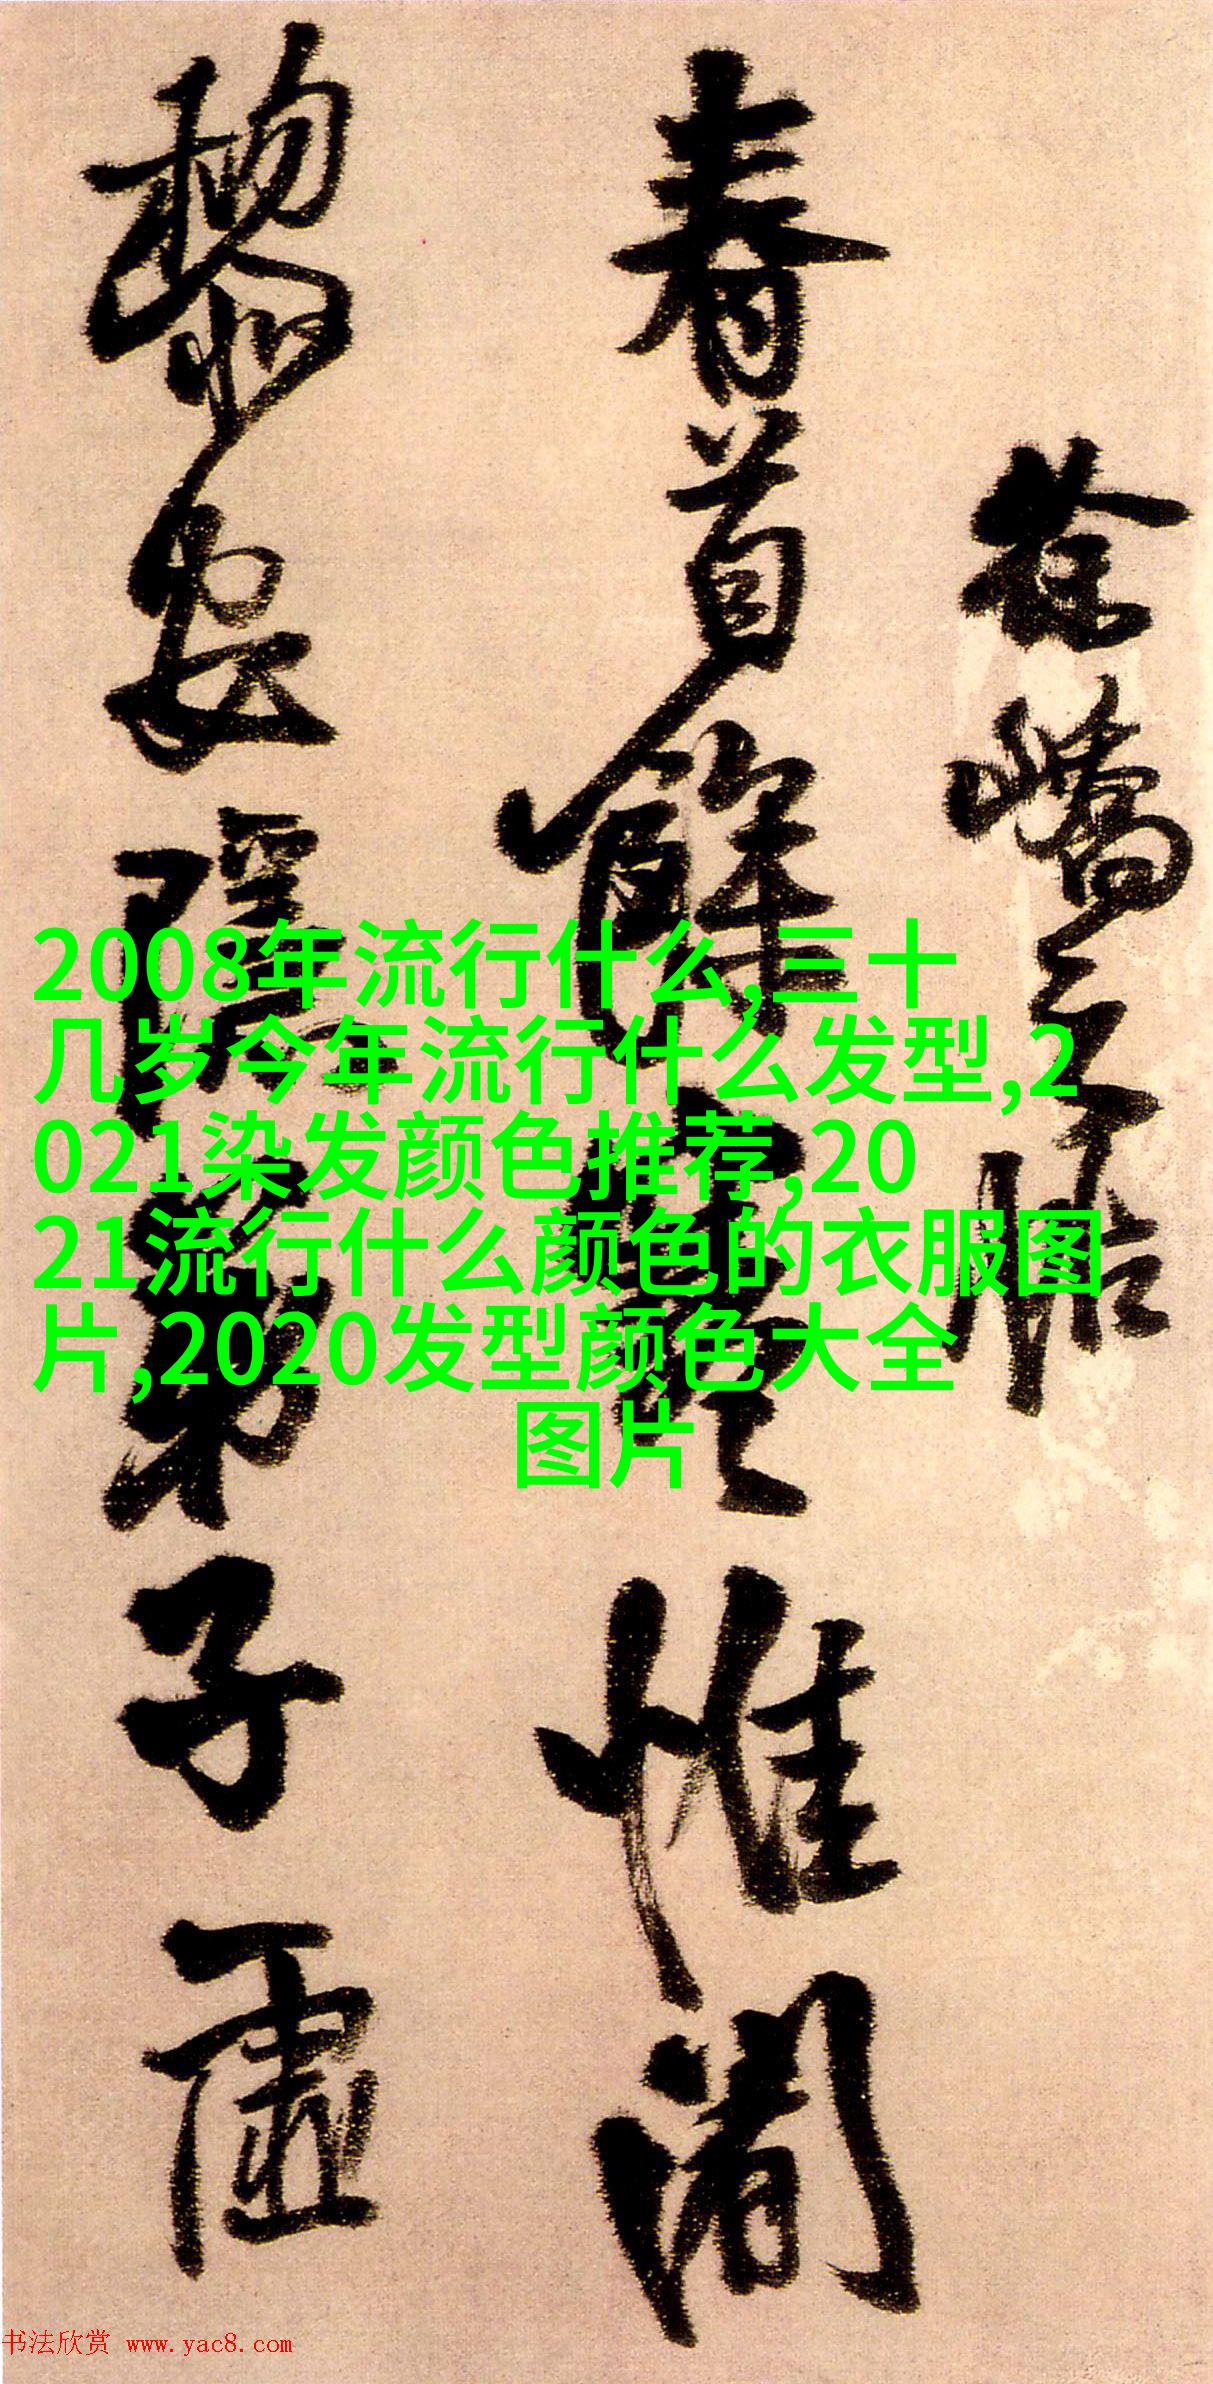 徐嶠之帖
春首餘寒惟闍
黎安隱弟子虛
2008年流行什么,三十
几岁今年流行什么发型,2
021染发颜色推荐,20
21流行什么颜色的衣服图
片,2020发型颜色大全
图片
书法欣赏 www.yac8.com